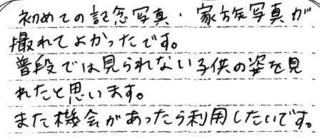 初めての記念写真・家族写真が
撮れてよかったです。
普段では見られない子供の姿を見
れたと思います。
また機会があったら利用したいです。